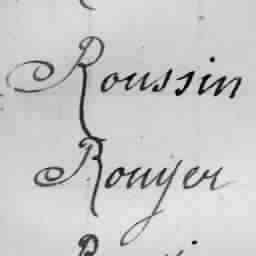 Roussin
Rouyer